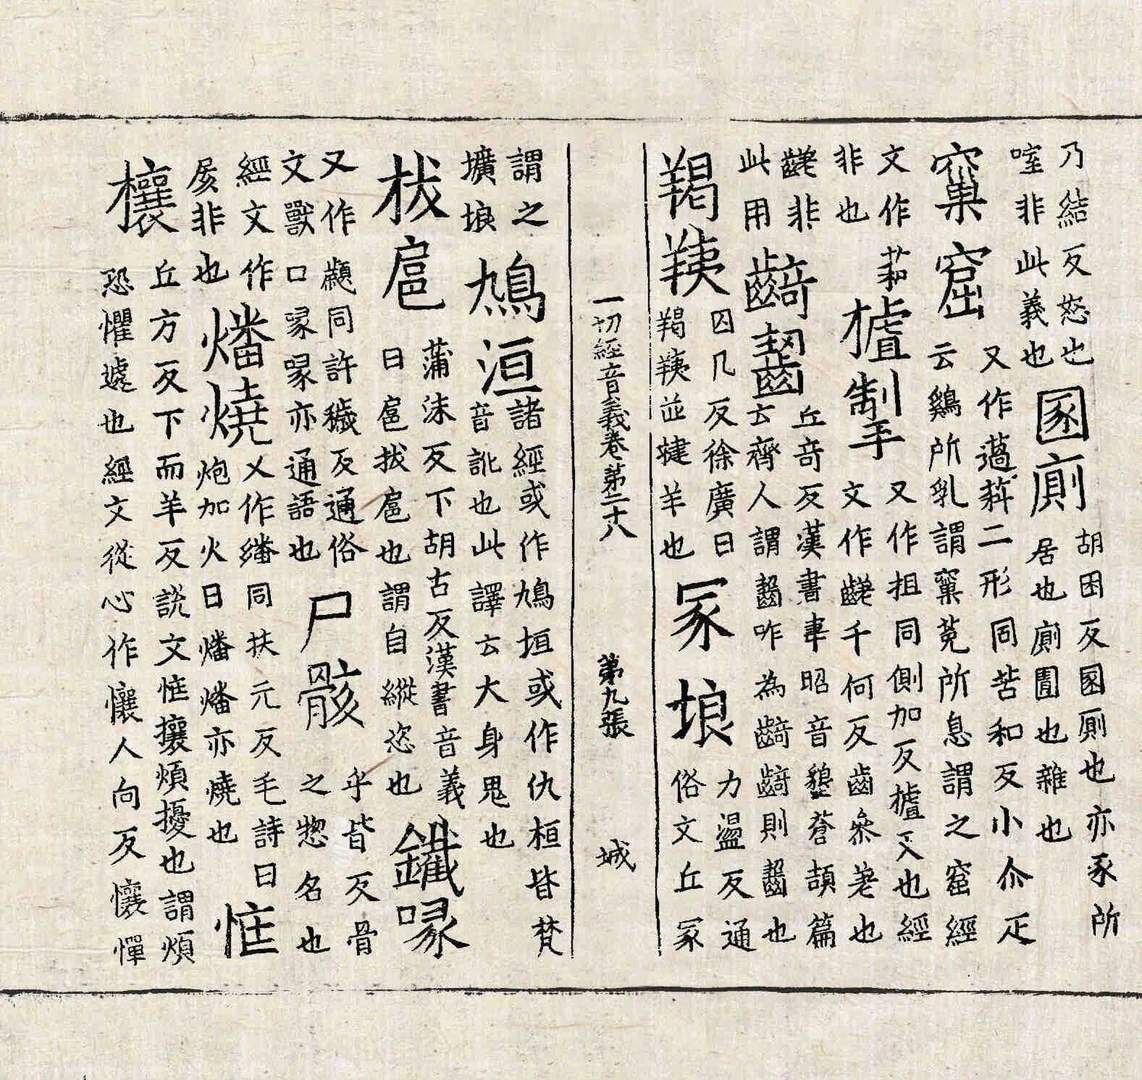 乃結反怒也
㗌非此義也
圂廁
胡困反圂廁也亦豕所
居也廁圊也雜也
窠窟
又作薖萪二形同苦和反小介疋
云鷄所乳謂窠莬所息謂之窟經
文作萪
非也
樝掣
又作抯同側加反樝叉也經
文作齹千何反齒叅差也
齹非
此用
齮齧
丘奇反漢書韋昭音墾蒼頡篇
云齊人謂齧咋為齮齮則齧也
羯羠
囚几反徐廣曰
羯羠並犍羊也
冢埌
力盪反通
俗文丘冢
一切經音義卷苐二十八 苐九張 城
謂之
壙埌
鳩洹
諸經或作鳩垣或作仇桓皆梵
音訛也此譯云大身鬼也
拔扈
蒲沬反下胡古反漢書音義
曰扈拔扈也謂自縱恣也
鐵喙
又作顪同許穢反通俗
文獸口喙喙亦通語也
經文作
非也
尸骸
乎皆反骨
之惣名也
燔燒
又作繙同扶元反毛詩曰
炮加火曰燔燔亦燒也
恇
攘
丘方反下而羊反説文恇攘煩擾也謂煩
恐懼遽也經文從心作懹人向反懹憚